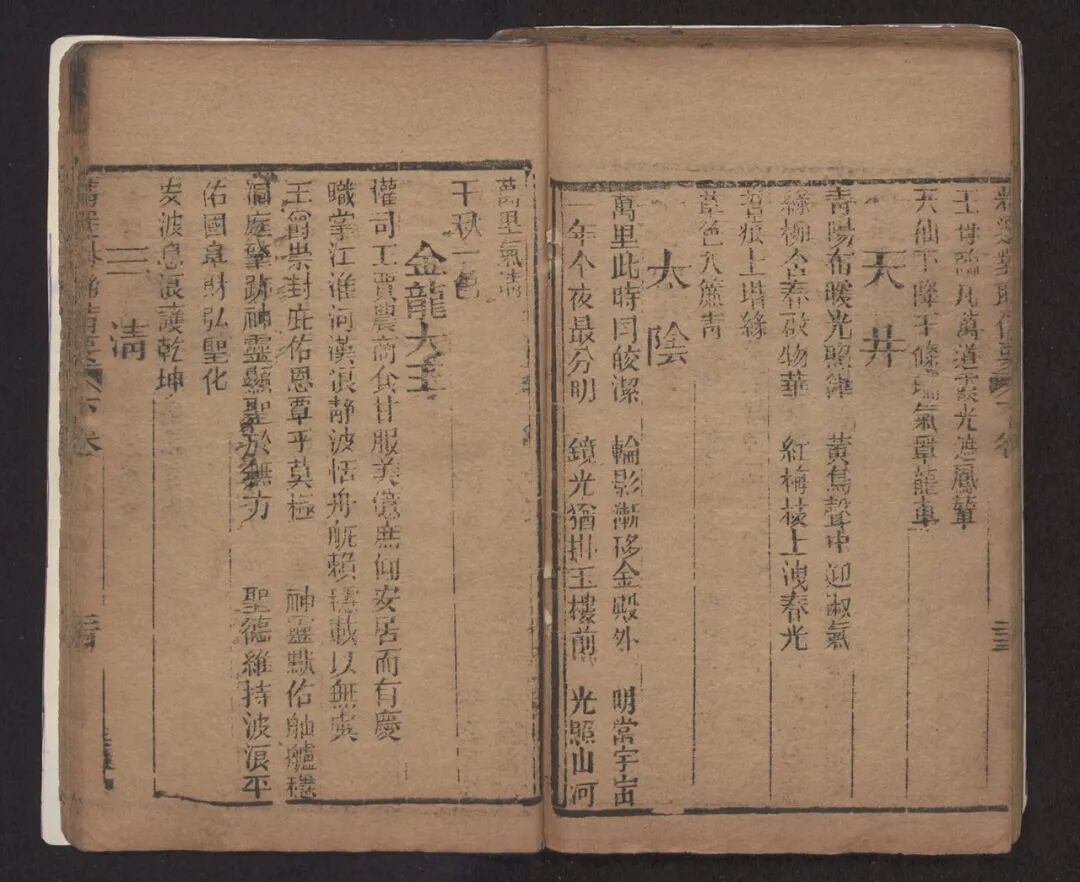 王母臨凡萬道霞光遮鳳輦
天仙下降千條瑞氣罩龍車
天井
青陽布暖光照津　黃鳥聲中迎淑氣
綠柳含春敲物華　紅梅枝上洩春光
苔痕上堦綠
草色入簾青
太陰
萬里此時同皎潔　輪影漸移金殿外　明當宇宙
一年今夜最分明　鏡光猶掛玉樓前　光照山河
萬里氣清
千秋一色
金龍大王
權司工賈農商食甘服美億庶仰安居而有慶
職掌江淮河漢浪靜波恬舟航賴穩載以無虞
王爵崇封庇佑恩覃乎莫極　神靈默佑舳艫穩
洞庭肇跡神靈顯聖於無方　聖德維持波浪平
佑國阜財弘聖化
安波息浪護乾坤
三清
下卷